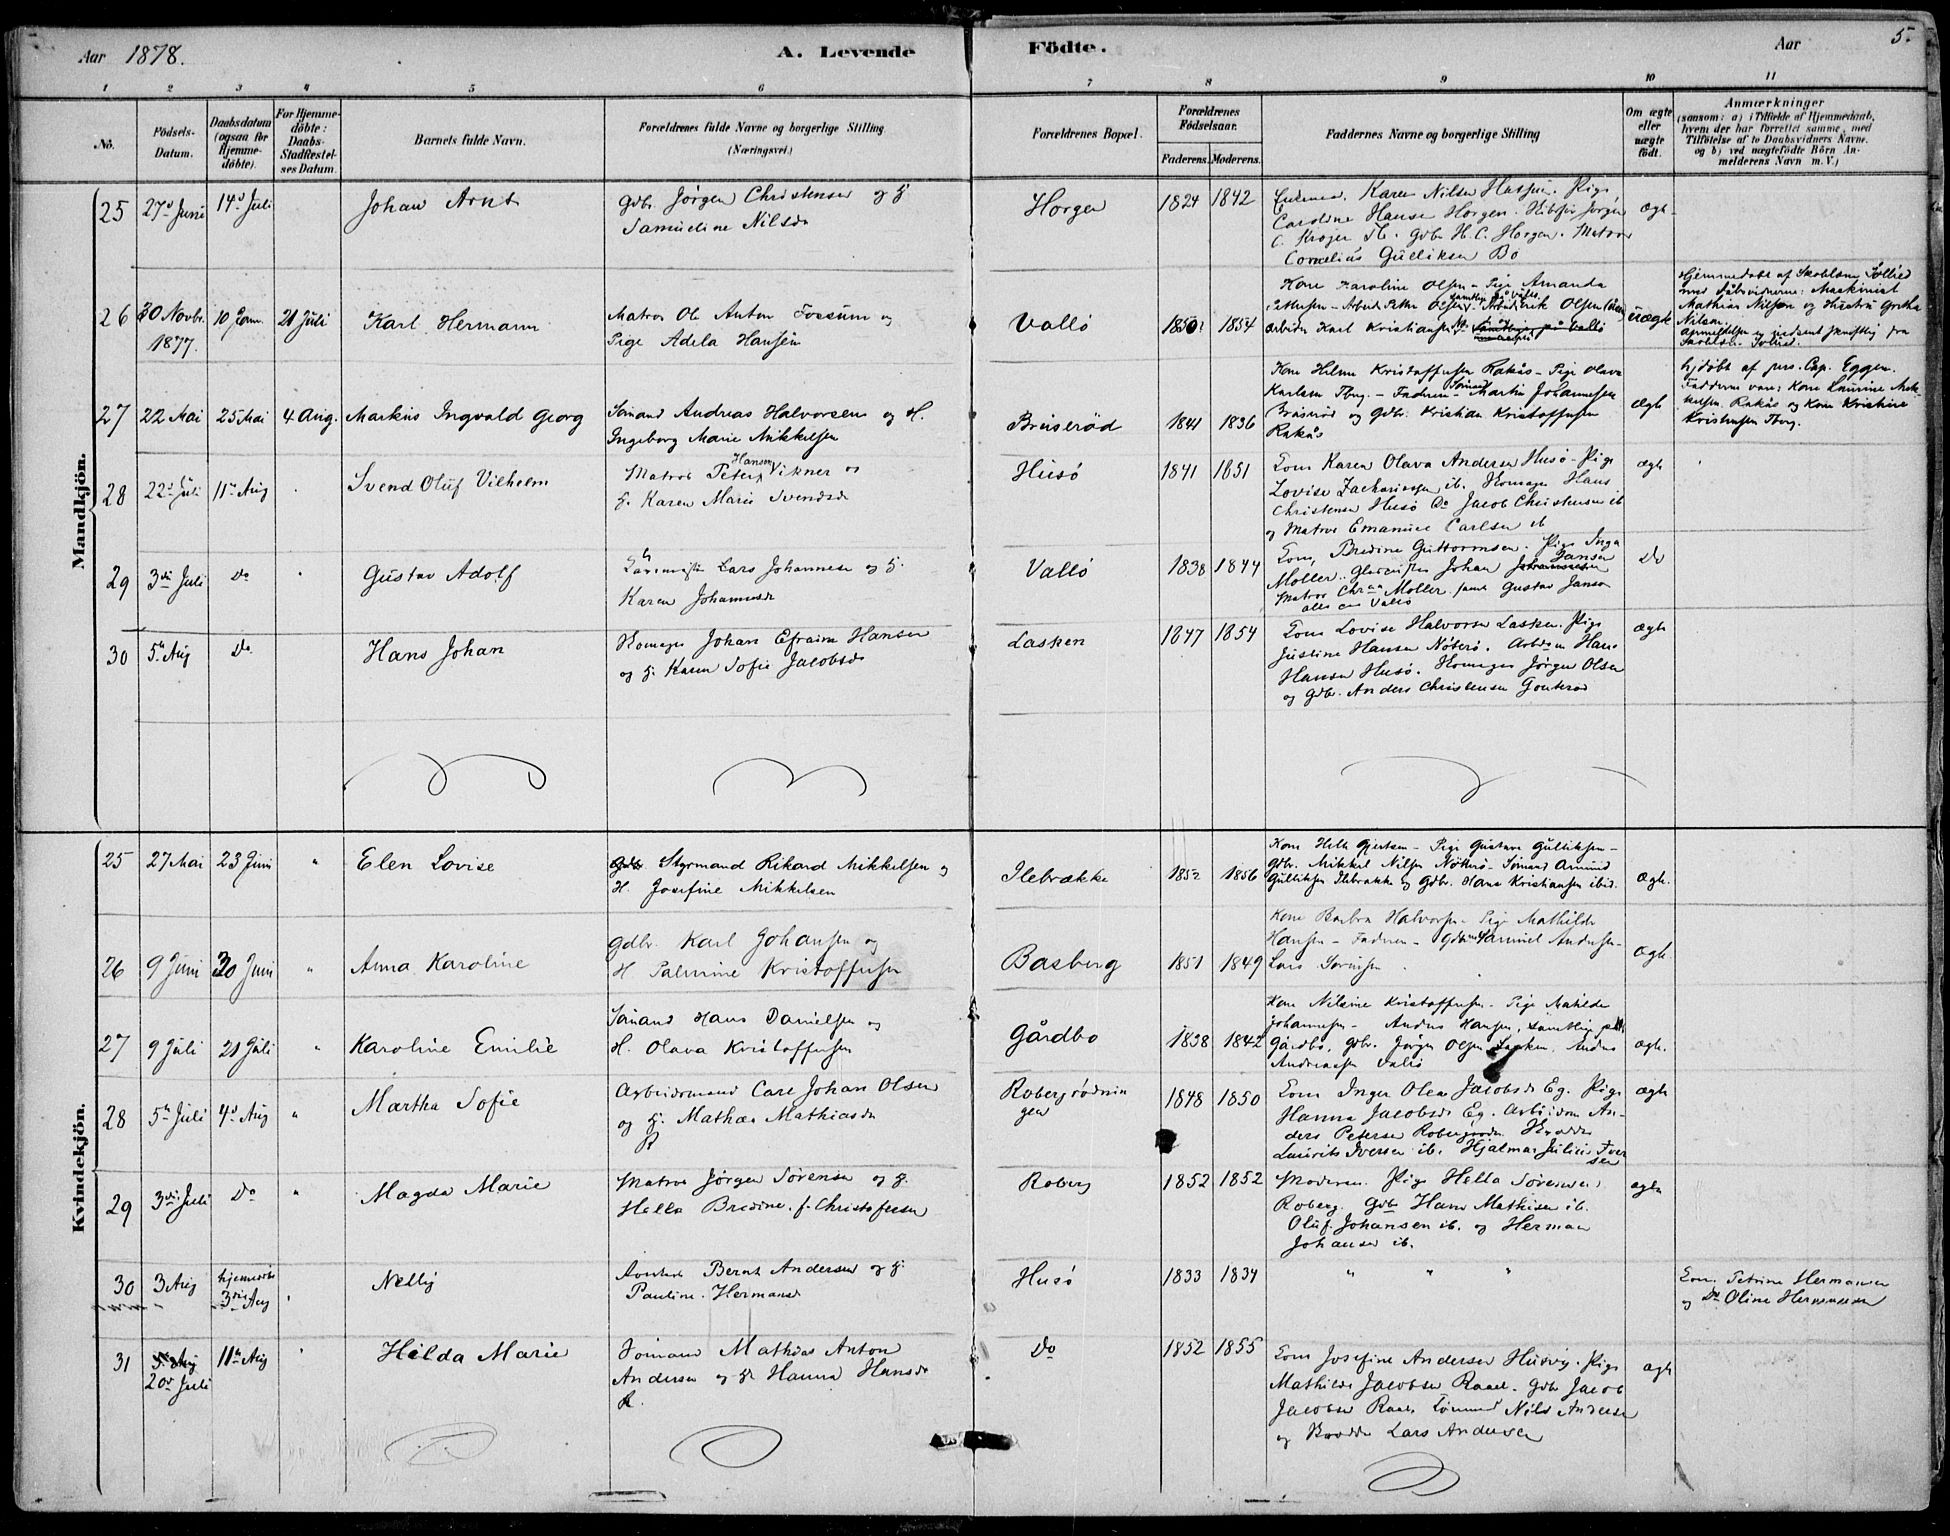 Aar 1878.
A. Levende Födte.
Aar
5.
1 2 3 4 5 6 7 8 9 10 11
No.
Födsels-Datum.
Daabsdatum (ogsaa for Hjemmedöbte).
For Hjemmedöbte: Daabs-Stadfestelses Datum.
Barnets fulde Navn.
Forældrenes fulde Navne og borgerlige Stilling
(Næringsvei.)
Forældrenes Bopæl.
Forældrenes Födselsaar.
Faderens. Moderens.
Faddernes Navne og borgerlige Stilling
Om ægte eller uægte födt.
Anmærkninger
(saasom: a) i Tilfælde af Hjemmedaab,
hvem der har forrettet samme, med
Tilföielse af to Daabsvidners Navne.
og b) ved uægtefödte Börn Anmelderens Navn m. V.)
Mandkjön.
25 27d Juni 14d Juli Johan Arnt
Gdbr. Jörgen Christensen og H
Samueline Nilsd
Horgen 1824 1842
Karen Nilsen Pige
Caroline Hansen Horgen. Jörgen
C. Kröjer Th. Gdbr H. C. Horgen. Matros
Cornelius Gulliksen Bö
ægt
26 30 Novbr. 1877. 10 21 Juli Karl Hermann
Matros Ole Anton Fossum og
Pige Adela Hansen
Vallö 1850 1854
Kone Karoline Olsen - Pige Amanda
Pettersen - Arbeid. Petter Olsen
arbeider Karl Kristiansen
uægte
Hjemmedöbt af Skolelærer Sollied
med Daabsvidnerne: Maskinist
Mathias Nilsen og Hustru Grethe
Nilsen.
Anmeldelsen er indsent skriftlig fra
Skolelær. Sollied.
27 22 Mai 25 Mai 4 Aug. Markus Ingvald Georg
Sömand Andreas Halvorsen og H.
Ingeborg Marie Mikkelsen
Breiseröd 1841 1836
Kone Helene Kristoffersen Rakås - Pige Olava
Karlsen Tbrg. - Faderen - Sömand Martin Johannessen
og Gdbr. Kristian Kristoffersen
Rakås
ægte
hjdöbt af pers. Cap. Eggen.
Fadderne vare: Kone Laurine
Rakås og Kone Kristine
Kristensen Tbrg.
28 22d Juli 11te Aug Svend Oluf Vilhelm
Matros Peter Hansen Vikner og
H. Karen Marie Svendsd
Husö 1841 1851
Kone Karen Olava Andersen Husö - Pige
Lovise Zachariassen ib. Hans
Christensen Husö Do Jacob Christensen ib
og Matros Emanuel Carlsen ib
ægte
29 3die Juli Do Gustav Adolf
Lars Johannesen og H.
Karen Johannesd
Vallö 1838 1844
Kone Bredine Guttormsen. Pige Inga
Möller. Johan Jansen
Matros Chr. Möller samt Gustav Janson
alle Vallö
Do
30 5te Aug Do. Hans Johan
Johan Efraim Hansen
og H. Karen Sofie Jacobsd
Lasken 1847 1854
Kone Lovise Halvorsen Lasken. Pige
Justine Hansen Nöterö. Hans
Hansen Husö. Jörgen Olsen
og Gdbr. Anders Christensen
ægte
Kvindekjön.
25 27 Mai 23 Juni " Elen Lovise
Styrmand Rikard Mikkelsen og
H. Josefine Mikkelsen
Ilebrække 1852 1856
Kone Helle Gjertsen - Pige Gustava Gulliksen -
Gdbr. Mikkel Nilsen Nötterö - Sömand Amund
Gulliksen Ilebrække og Gdbr. Hans Kristiansen ibid.
ægte.
26 9 Juni 30 Juni " Anna Karoline
Gdbr. Karl Johansen og
H. Palmine Kristoffersen
Basberg 1851 1849
Kone Barbra Halvorsen - Pige Mathilde
Hansen - Faderen - Samuel Andersen -
Lars Sörensen
ægte
27 9 Juli 21 Juli " Karoline Emilie
Sömand Hans Danielsen og
H. Olava Kristoffersen
Gårdbo 1838 1842
Kone Nilsine Kristoffersen - Pige Matilde
Johannesen - Anders Hansen, samtlige på
Gårdbo, Gdbr. Jörgen Olsen Lasken, Anders
Andreassen Vallö
ægte.
28 5te Juli 4de Aug " Martha Sofie
Arbeidsmand Carl Johan Olsen
og H. Mathea Mathiasdr
Robergrödningen 1848 1850
Kone Inger Olea Jacobsd Eg. Pige
Hanna Jacobsd Eg. An-
ders Petersen
Laurits Iversen ib. Hjalmar Julius Iversen
ægte
29 3die Juli Do " Magda Marie
Matros Jörgen Sörensen og H.
Hella Bredine f. Christofersen
Roberg 1852 1852
Moderen. Pige Hella Sörensen
Roberg. Gdbr Hans Mathisen ib.
Oluf Johansen ib. og Herman
Johansen ib.
ægte
30 3 Aug hjemmedöbt 3die Aug Nelly
Bernt Andersen og H
Pauline Hermansd
Husö 1833 1834 " " "
Kone Petrine Hermansen
og Do Oline Hermansen
31 20d Juli 11te Aug Hilda Marie
Sömand Mathias Anton
Andersen og H. Hanna Hansd
Do 1852 1855
Kone Josefine Andersen Husvig. Pige
Mathilde Jacobsen Rael. Gdbr Jacob
Jacobsen Rael. Sömand Nils Andersen
og Lars Andersen
ægte